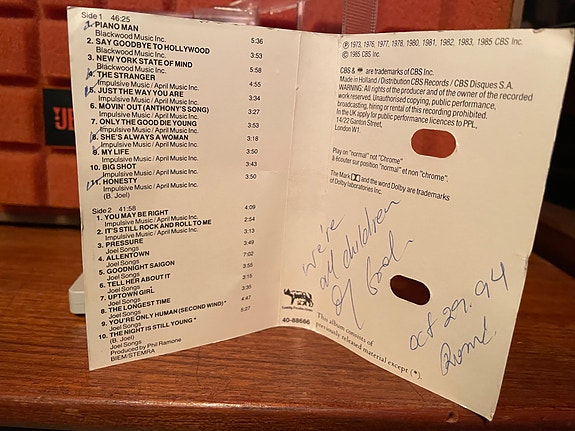 Side 1 46:25
1. PIANO MAN 5:36
Blackwood Music Inc.
2. SAY GOODBYE TO HOLLYWOOD 3:53
Blackwood Music Inc.
3. NEW YORK STATE OF MIND 5:58
Blackwood Music Inc.
4. THE STRANGER 4:55
Impulsive Music / April Music Inc.
5. JUST THE WAY YOU ARE 3:34
Impulsive Music / April Music Inc.
6. MOVIN' OUT (ANTHONY'S SONG) 3:27
Impulsive Music / April Music Inc.
7. ONLY THE GOOD DIE YOUNG 3:53
Impulsive Music / April Music Inc.
8. SHE'S ALWAYS A WOMAN 3:18
Impulsive Music / April Music Inc.
9. MY LIFE 3:50
Impulsive Music / April Music Inc.
10. BIG SHOT 3:43
Impulsive Music / April Music Inc.
11. HONESTY 3:50
Impulsive Music / April Music Inc.
(B. Joel)
Side 2 41:58
1. YOU MAY BE RIGHT 4:09
2. IT'S STILL ROCK AND ROLL TO ME 2:54
Impulsive Music / April Music Inc.
3. PRESSURE 3:13
Joel Songs
4. ALLENTOWN 3:49
Joel Songs
5. GOODNIGHT SAIGON 7:02
Joel Songs
6. TELL HER ABOUT IT 3:35
Joel Songs
7. UPTOWN GIRL 3:15
Joel Songs
8. THE LONGEST TIME 3:35
Joel Songs
9. YOU'RE ONLY HUMAN (SECOND WIND) * 4:47
Joel Songs
10. THE NIGHT IS STILL YOUNG * 5:27
(B. Joel)
Joel Songs
Produced by Phil Ramone
BIEM/STEMRA
℗ 1973, 1976, 1977, 1978, 1980, 1981, 1982, 1983, 1985 CBS Inc.
© 1985 CBS Inc.
CBS & are trademarks of CBS Inc.
Made in Holland / Distribution CBS Records / CBS Disques S.A.
WARNING: All rights of the producer and of the owner of the recorded
work reserved. Unauthorised copying, public performance,
broadcasting, hiring or rental of this recording prohibited.
In the UK apply for public performance licences to PPL,
14/22 Ganton Street,
London W1.
Play on "normal" not "Chrome"
à écouter sur position "normal" et non "chrome".
The Mark and the word Dolby are trademarks
of Dolby laboratories Inc.
we're
all children
of God
oct 29. 94
40-88666
This album consists of
previously released material except (*).